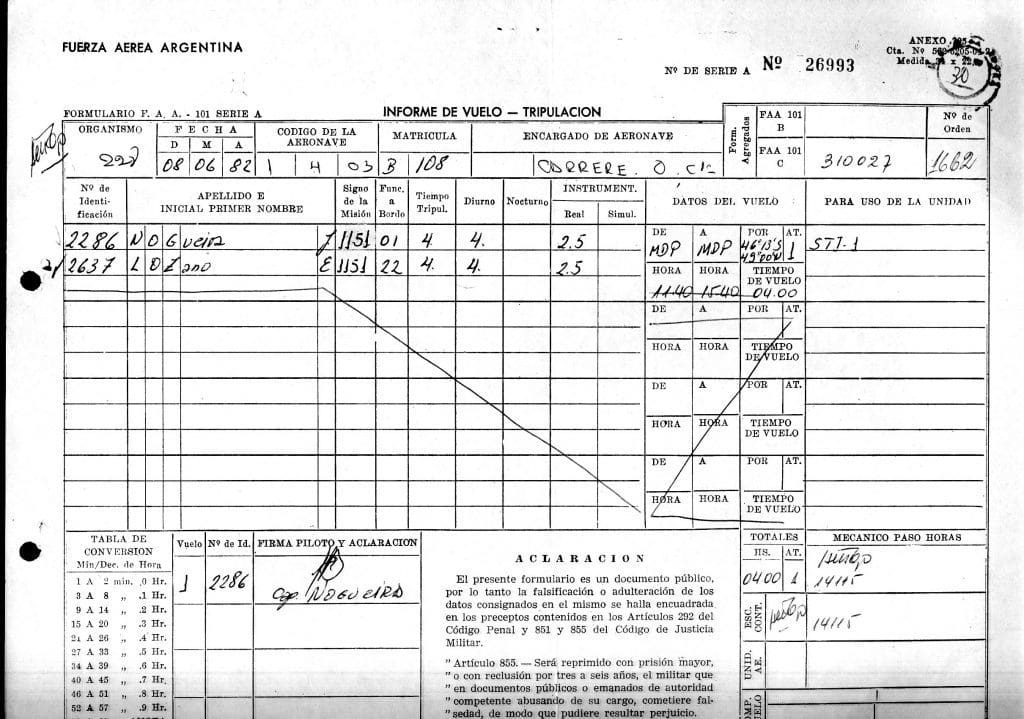 FUERZA AEREA ARGENTINA
ANEXO
Cta. Nº
Medida
30
Nº DE SERIE A Nº 26993
FORMULARIO F. A. A. - 101 SERIE A
INFORME DE VUELO — TRIPULACION
ORGANISMO
F E C H A
D M A
08 06 82
CODIGO DE LA AERONAVE
1 4 03 B
MATRICULA
108
ENCARGADO DE AERONAVE
Form. Agregados
FAA 101 B
FAA 101 C
310027
Nº de Orden
1662
Nº de Identi-ficación
APELLIDO E INICIAL PRIMER NOMBRE
Signo de la Misión
Func. a Bordo
Tiempo Tripul.
Diurno
Nocturno
INSTRUMENT.
Real Simul.
DATOS DEL VUELO
PARA USO DE LA UNIDAD
2286 NOGueira J 1151 01 4. 4. 2.5
2637 LOZano E 1151 22 4. 4. 2.5
DE A POR AT.
MDP MDP 46º13'S 49º00'W 1
STI-1
HORA HORA TIEMPO DE VUELO
11.40 15.40 04.00
DE A POR AT.
HORA HORA TIEMPO DE VUELO
DE A POR AT.
HORA HORA TIEMPO DE VUELO
DE A POR AT.
HORA HORA TIEMPO DE VUELO
TABLA DE CONVERSION
Min/Dec. de Hora
1 A 2 min. .0 Hr.
3 A 8 „ .1 Hr.
9 A 14 „ .2 Hr.
15 A 20 „ .3 Hr.
21 A 26 „ .4 Hr.
27 A 33 „ .5 Hr.
34 A 39 „ .6 Hr.
40 A 45 „ .7 Hr.
46 A 51 „ .8 Hr.
52 A 57 „ .9 Hr.
Vuelo Nº de Id. FIRMA PILOTO Y ACLARACION
1 2286 NOGUEIRA
ACLARACION
El presente formulario es un documento público,
por lo tanto la falsificación o adulteración de los
datos consignados en el mismo se halla encuadrada
en los preceptos contenidos en los Artículos 292 del
Código Penal y 851 y 855 del Código de Justicia
Militar.
" Artículo 855. — Será reprimido con prisión mayor,
" o con reclusión por tres a seis años, el militar que
" en documentos públicos o emanados de autoridad
" competente abusando de su cargo, cometiere fal-
" sedad, de modo que pudiere resultar perjuicio.
TOTALES
HS. AT.
04 00 1
MECANICO PASO HORAS
14115
ESC. CONT.
14115
UNID. AE.